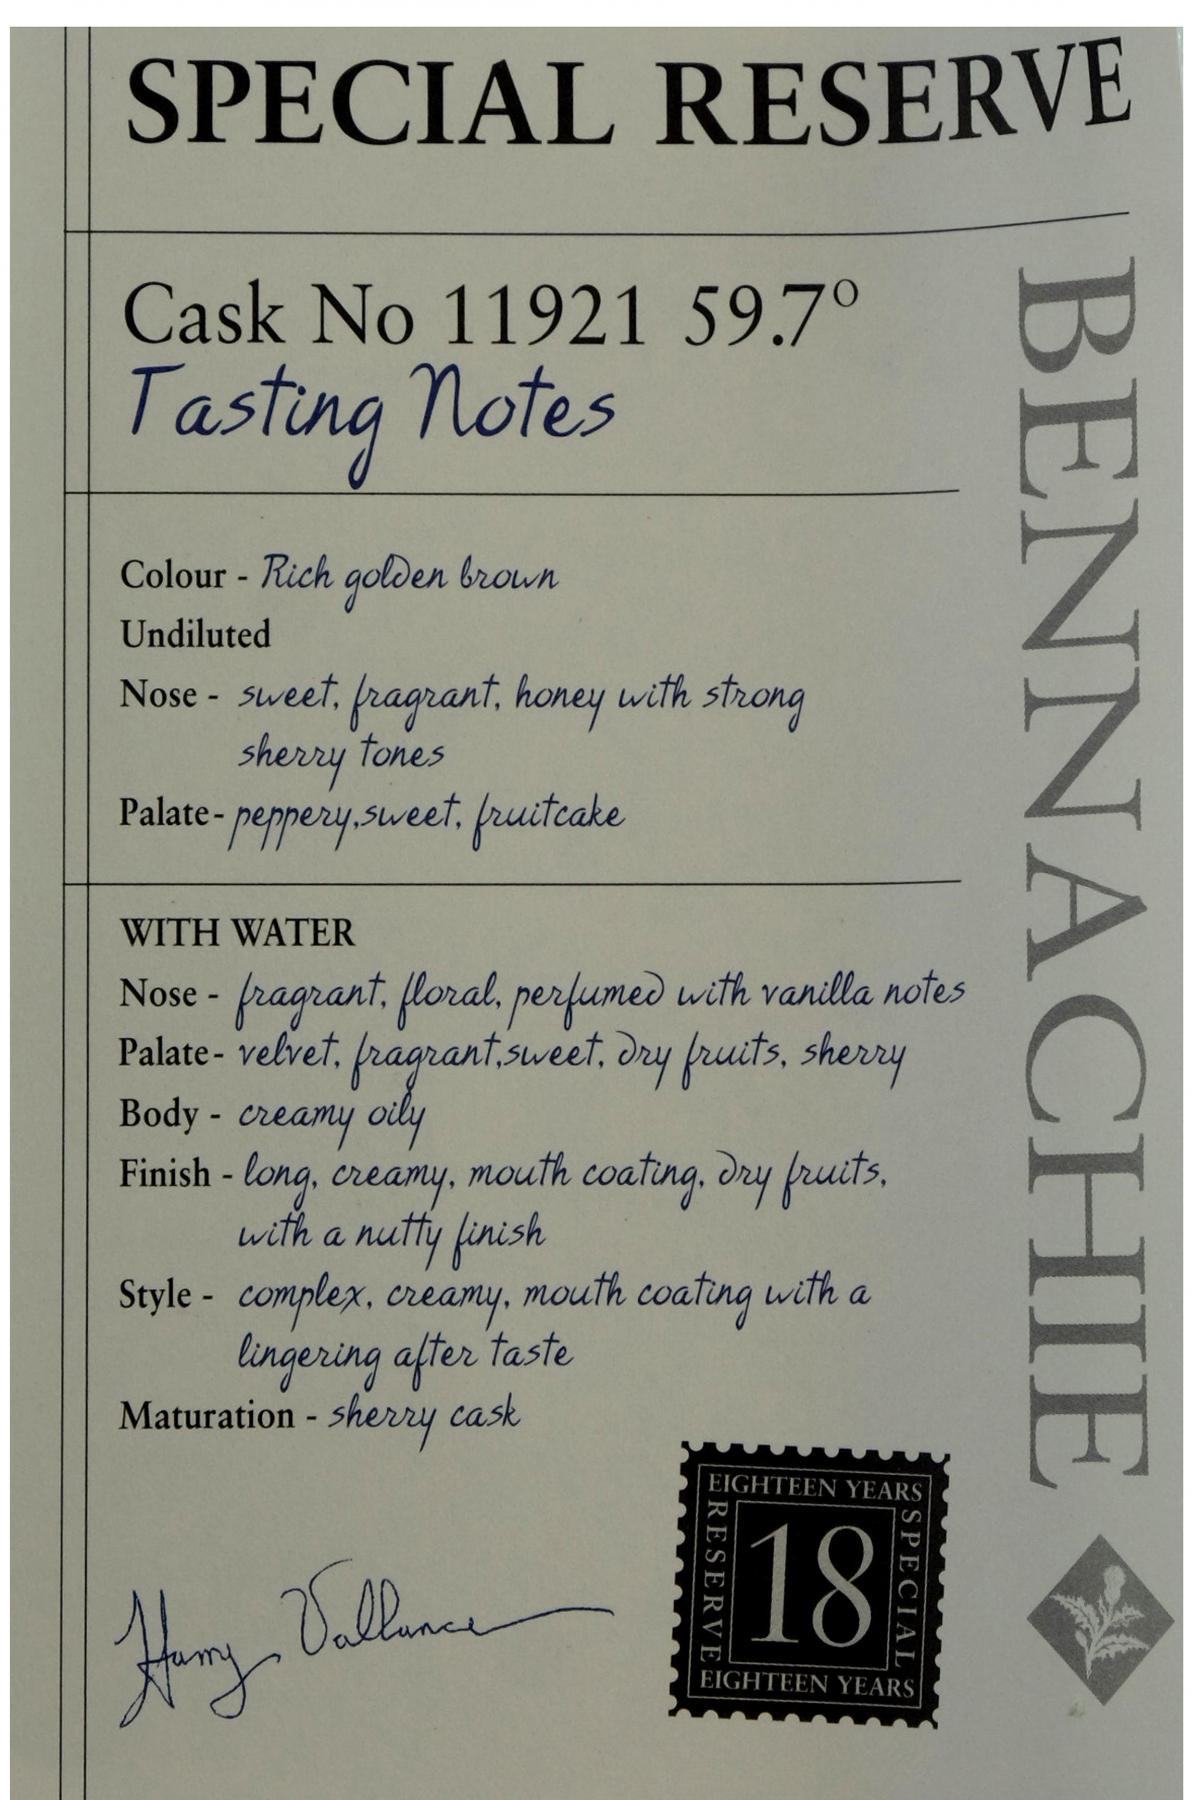 SPECIAL RESERVE
Cask No 11921 59.7°
Tasting Notes
Colour - Rich golden brown
Undiluted
Nose - sweet, fragrant, honey with strong
sherry tones
Palate- peppery,sweet, fruitcake
WITH WATER
Nose - fragrant, floral, perfumed with vanilla notes
Palate- velvet, fragrant,sweet, dry fruits, sherry
Body - creamy oily
Finish - long, creamy, mouth coating, dry fruits,
with a nutty finish
Style - complex, creamy, mouth coating with a
lingering after taste
Maturation - sherry cask
Harry Vallance
EIGHTEEN YEARS
RESERVE
18
SPECIAL
EIGHTEEN YEARS
BENNACHIE